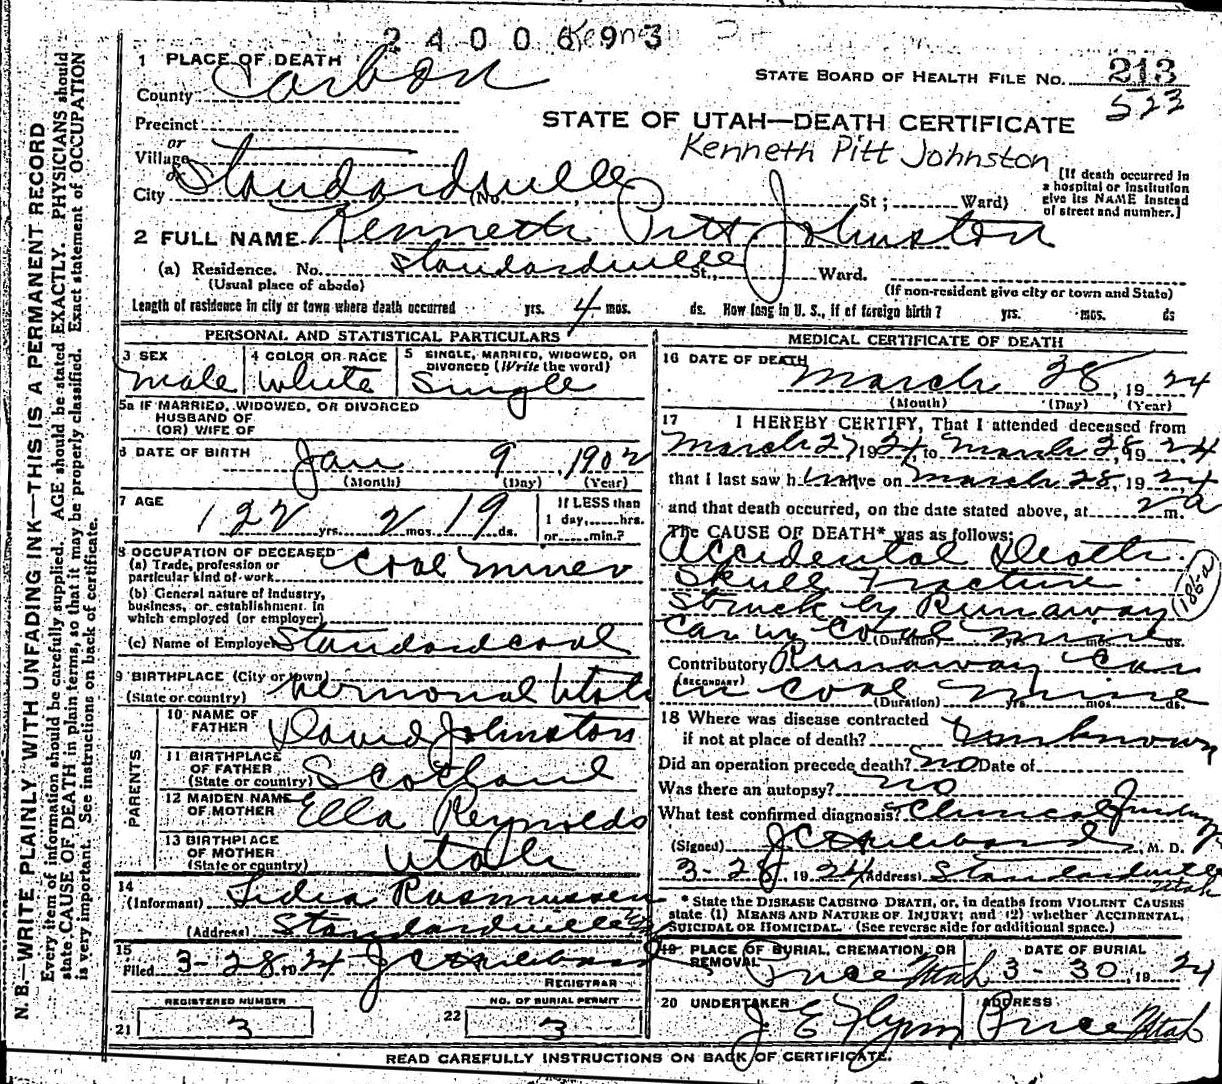 2400693
N. B.—WRITE PLAINLY WITH UNFADING INK—THIS IS A PERMANENT RECORD
Every item of information should be carefully supplied. AGE should be stated EXACTLY. PHYSICIANS should
state CAUSE OF DEATH in plain terms, so that it may be properly classified. Exact statement of OCCUPATION
is very important. See instructions on back of certificate.
1 PLACE OF DEATH
County Carbon
STATE BOARD OF HEALTH FILE NO. 213
523
Precinct
STATE OF UTAH—DEATH CERTIFICATE
or
Village
Kenneth Pitt Johnston
or
City Standardville (No. St; Ward)
[If death occurred in
a hospital or institution
give its NAME instead
of street and number.]
2 FULL NAME Kenneth Pitt Johnston
(a) Residence. No. Standardville St., Ward.
(Usual place of abode) (If non-resident give city or town and State)
Length of residence in city or town where death occurred yrs. 4 mos. ds. How long in U. S., if of foreign birth? yrs. mos. ds
PERSONAL AND STATISTICAL PARTICULARS
3 SEX 4 COLOR OR RACE 5 SINGLE, MARRIED, WIDOWED, OR
DIVORCED (Write the word)
male white Single
5a IF MARRIED, WIDOWED, OR DIVORCED
HUSBAND OF
(OR) WIFE OF
6 DATE OF BIRTH Jan 9, 1902
(Month) (Day) (Year)
7 AGE 22 yrs. 2 mos. 19 ds.
If LESS than
1 day, hrs.
or min.?
8 OCCUPATION OF DECEASED
(a) Trade, profession or
particular kind of work Coal miner
(b) General nature of industry,
business, or establishment in
which employed (or employer)
(c) Name of Employer Standard coal
9 BIRTHPLACE (City or town)
(State or country) Utah
PARENTS
10 NAME OF
FATHER David Johnston
11 BIRTHPLACE
OF FATHER
(State or country) Scotland
12 MAIDEN NAME
OF MOTHER Ella Reynolds
13 BIRTHPLACE
OF MOTHER
(State or country) Utah
14
(Informant) Rasmussen
(Address) Standardville
15
Filed 3-28 1924
REGISTRAR
REGISTERED NUMBER NO. OF BURIAL PERMIT
21 3 22 3
MEDICAL CERTIFICATE OF DEATH
16 DATE OF DEATH
March 28, 1924
(Month) (Day) (Year)
17 I HEREBY CERTIFY, That I attended deceased from
March 27 1924, to March 28, 1924
that I last saw h im alive on March 28, 1924
and that death occurred, on the date stated above, at 2 a m.
The CAUSE OF DEATH* was as follows:
Accidental Death.
Skull Fracture.
Struck by Runaway 186-a
Car in Coal mine
(Duration) yrs. mos. ds.
Contributory Runaway Car
(SECONDARY) in Coal Mine
(Duration) yrs. mos. ds.
18 Where was disease contracted
if not at place of death? unknown
Did an operation precede death? no Date of
Was there an autopsy? no
What test confirmed diagnosis? Clinical
(Signed) M. D.
3-28, 1924 (Address) Standardville
Utah
* State the DISEASE CAUSING DEATH, or, in deaths from VIOLENT CAUSES
state (1) MEANS AND NATURE OF INJURY; and (2) whether ACCIDENTAL,
SUICIDAL OR HOMICIDAL. (See reverse side for additional space.)
19 PLACE OF BURIAL, CREMATION, OR
REMOVAL Price Utah
DATE OF BURIAL
3-30, 1924
20 UNDERTAKER
J E Flynn
ADDRESS
Price Utah
READ CAREFULLY INSTRUCTIONS ON BACK OF CERTIFICATE.